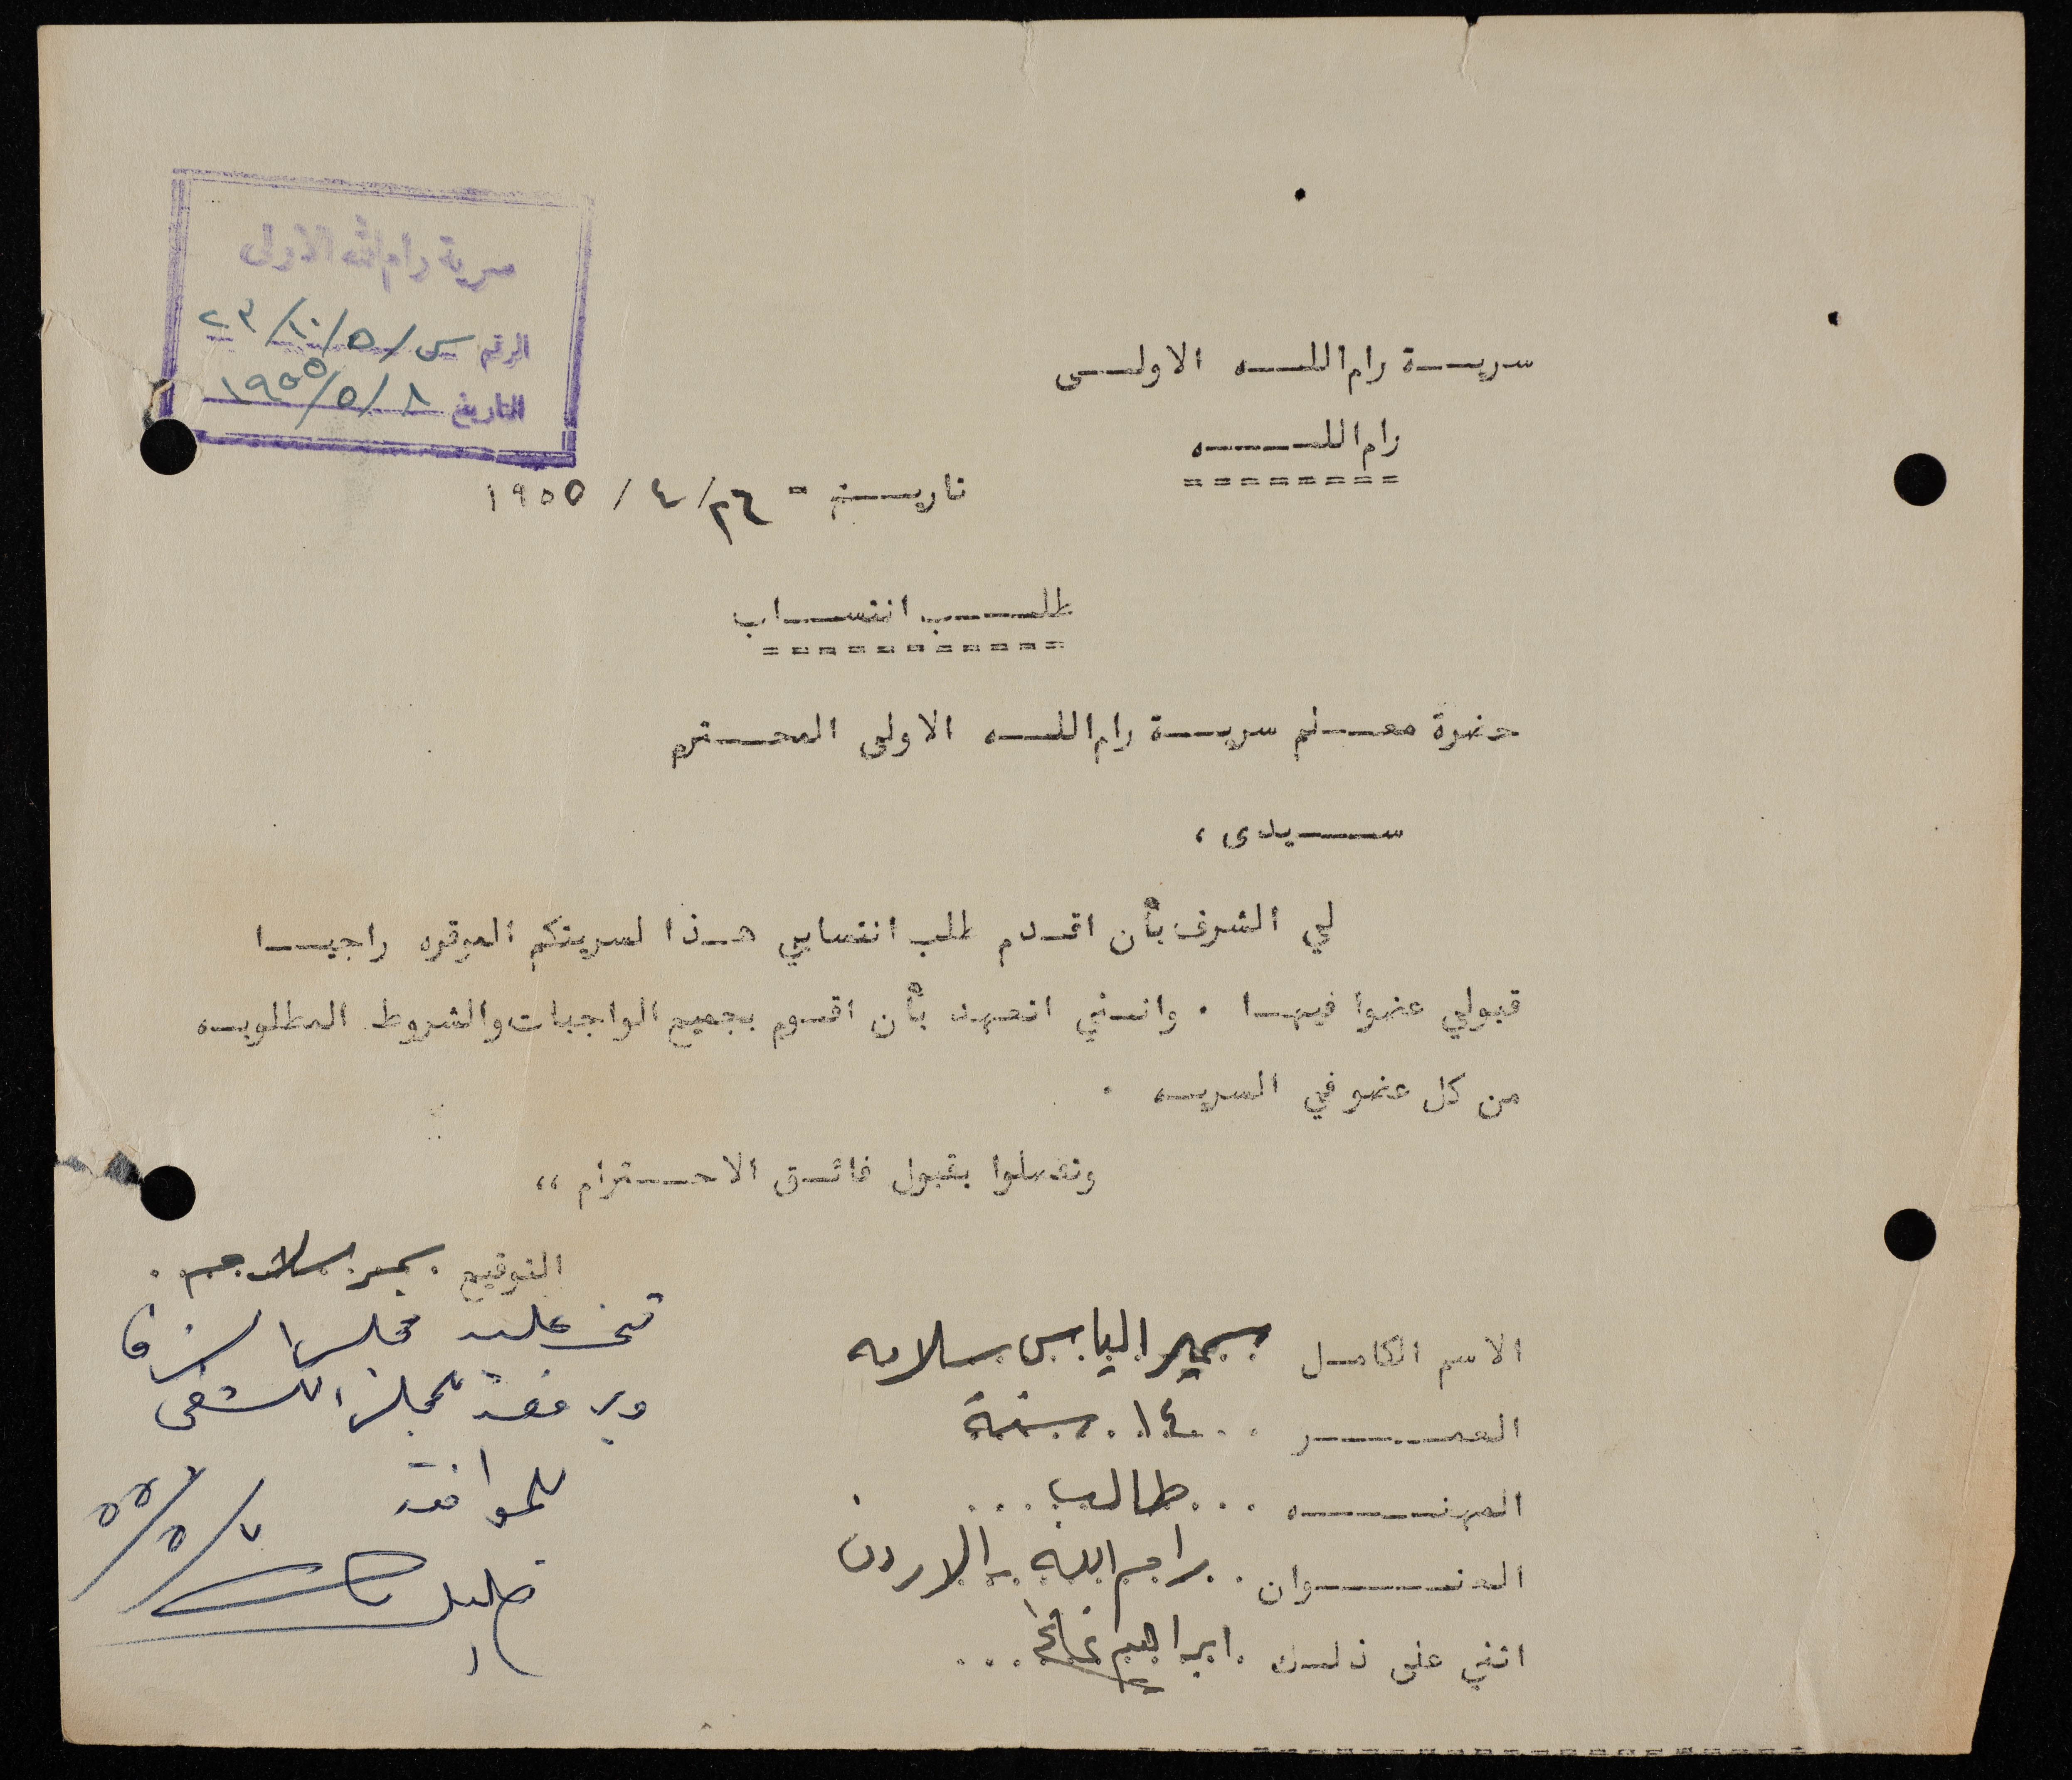 سرية رام الله الاولى
الرقم س/٥/١٠/٢٣
التاريخ ٨/٥/١٩٥٥
سرية رام الله الاولى
رام الله
========
تاريخ - ٢٦/٤/١٩٥٥
طلب انتساب
===========
حضرة معلم سرية رام الله الاولى المحترم
سيدى ،
لي الشرف بأن اقدم طلب انتسابي هذا لسريتكم الموقره راجيا
قبولي عضوا فيها . وانني اتعهد بأن اقوم بجميع الواجبات والشروط المطلوبه
من كل عضو في السريه .
وتفضلوا بقبول فائق الاحترام ،،
التوقيع سمير سلامه .
الاسم الكامل سمير الياس سلامه
العمر ..١٤. سنة
المهنه ...طالب...
العنوان . رام الله - الاردن
اثني على ذلك . ابراهيم ...
ثنى عليه مجلس الشرف
ويرفعه للمجلس الكشفي
للموافقة
٧/٥/٥٥
خليل